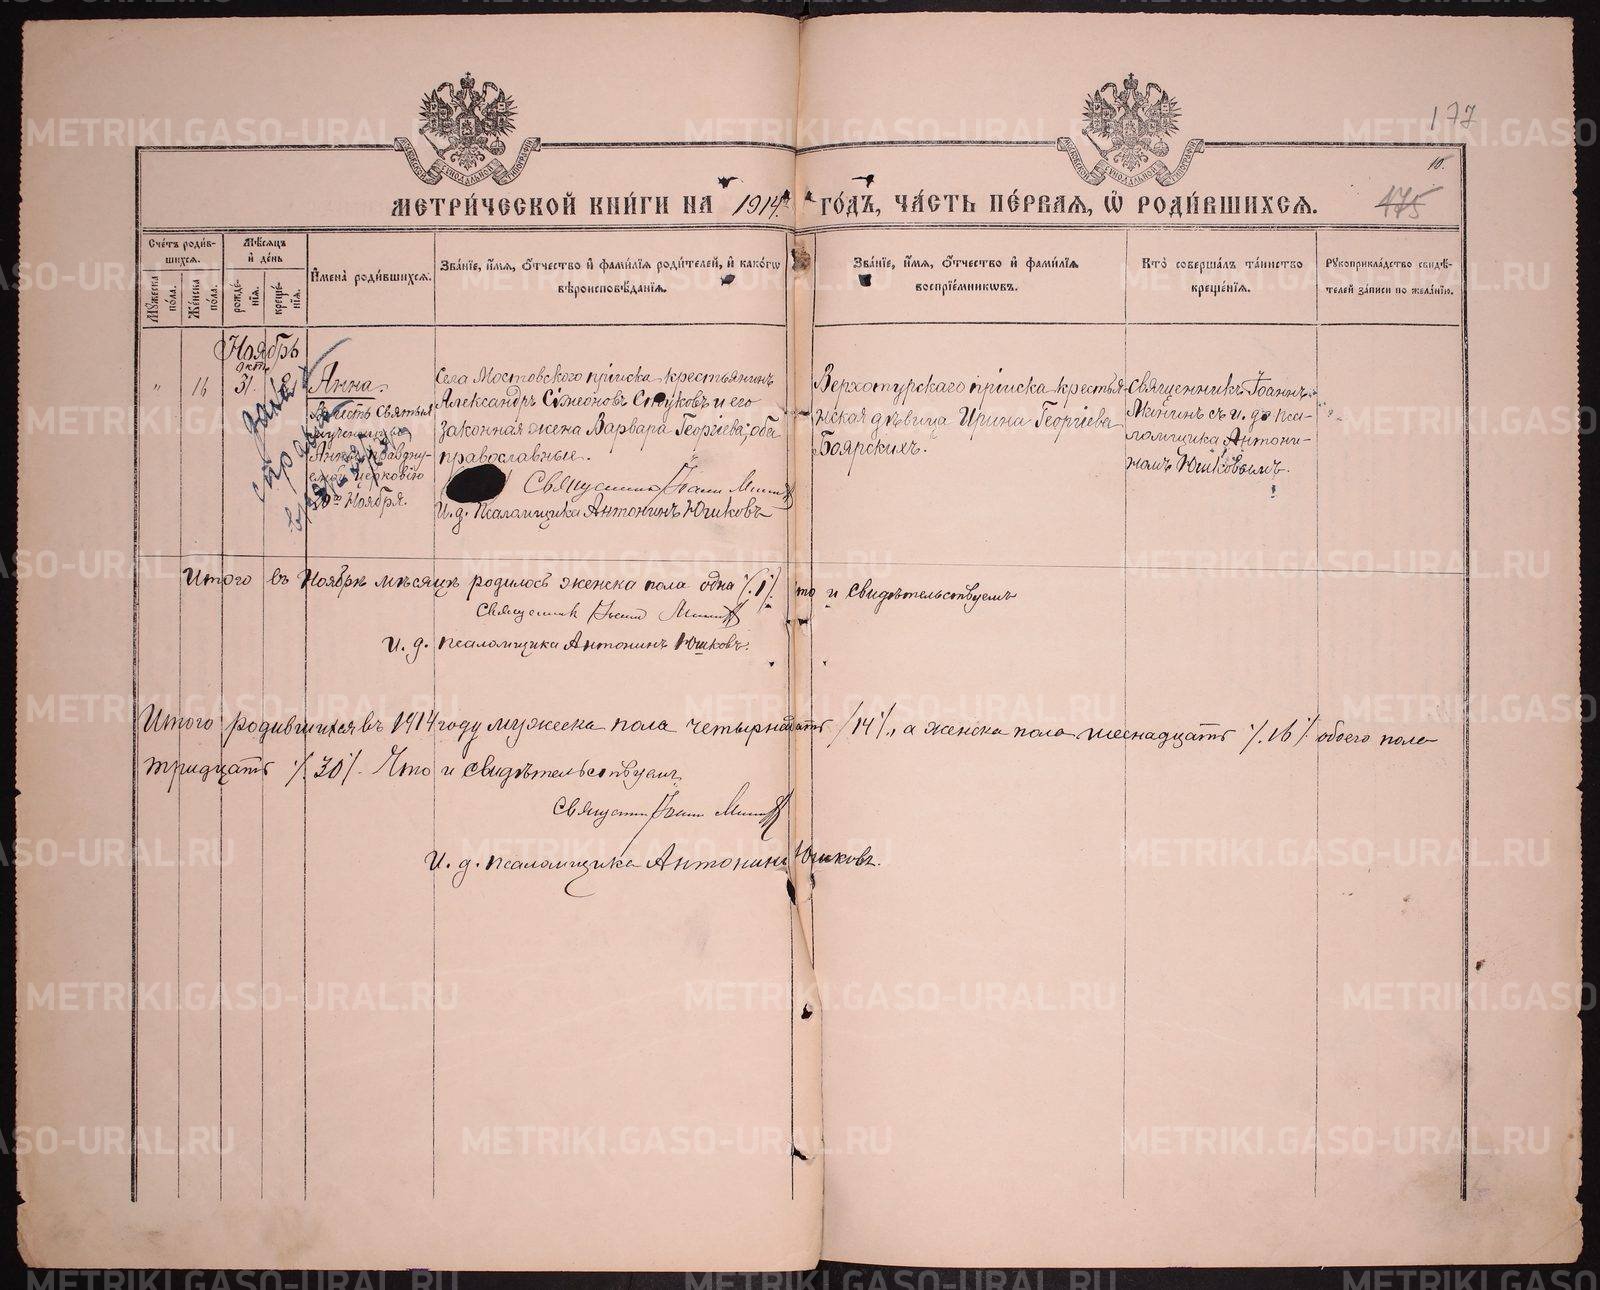 177
10.
175
МЕТРИ́ЧЕСКОЙ КНИ́ГИ НА 1914 ГО́ДЪ, ЧА́СТЬ ПЕ́РВАЯ, Ѡ РОДИ́ВШИХСЯ.
Сче́тъ роди́в-
шихся.
Му́жеска по́ла.
Же́нска по́ла.
Мѣ́сяцъ
и де́нь
рожде-
нія.
креще-
нія.
Имена́ роди́вшихся.
Зва́ніе, и́мя, о́тчество и фами́лія роди́телей, и како́гѡ
вѣроисповѣ́данія.
Зва́ніе, и́мя, о́тчество и фами́лія
воспріе́мниковъ.
Кто̀ соверша́лъ та́инство
креще́нія.
Рукоприкла́дство свидѣ́-
телей за́писи по жела́нію.
Ноябрь
окт.
" 16 31.
Анна.
Въ честь святыя
мученицы
Анны празд
емой церковію
Ноября.
Села Мостовского пріиска крестьянинъ
Александръ Симеоновъ Стуковъ и его
законная жена Варвара Георгіева, оба
православные.
Священникъ Іоаннъ Мининъ
И. д. псаломщика Антонинъ Юшковъ
Верхотурскаго пріиска крестья
нская дѣвица Ирина Георгіева
Боярскихъ.
Священникъ Іоаннъ
Мининъ съ и. д. пса-
ломщика Антони-
номъ Юшковымъ.
Итого въ Ноябрѣ мѣсяцѣ родилось женска пола одна /.1/. то и свидѣтельствуемъ
Священникъ Іоаннъ Мининъ
И. д. псаломщика Антонинъ Юшковъ.
Итого родившихся въ 1914 году мужеска пола четырнадцать /14/., а женска пола шеснадцать /.16/. обоего пола
тридцать /.30/. Что и свидѣтельствуемъ
Священникъ Іоаннъ Мининъ
И. д. псаломщика Антонинъ Юшковъ.
METRIKI.GASO-URAL.RU